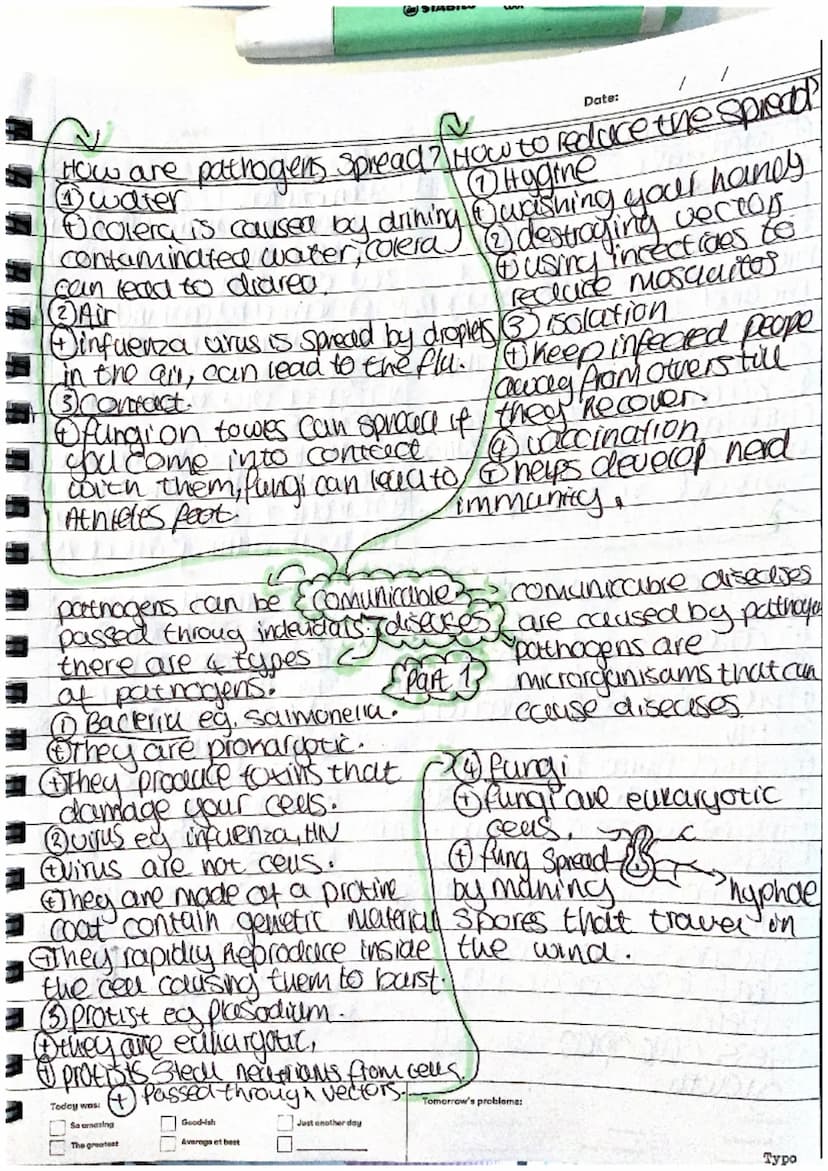 STABILO
Date: / /
How are pathogens spread?
① water
⊕ colera is caused by drining
contaminated water, colera
can lead to diarea.
② Air
⊕ infuenza virus is spread by droplets
in the air, can lead to the flu.
③ contact.
⊕ fungi on towes can spread if
you come into contact
with them, fungi can lead to
Athletes foot.
How to reduce the spread?
① Hygine
⊕ washing your hands
② destroying vectors
⊕ using insectides to
reduce mosquitos
③ isolation
⊕ keep infected peope
away from others till
they recover.
④ vaccination,
⊕ helps develop herd
immunity.
comunicable
diseases
Part 1
comunicable diseases
are caused by pathogen
pathogens are
microrganisams that can
cause diseases
pathogens can be
passed throug
there are 4 types
of pathogens:
① Bacteria eg. Salmonella.
⊕ They are prokaryotic.
⊕ They produce toxins that
damage your cells.
② virus eg influenza, HIV
⊕ virus are not cells.
⊕ They are made of a protine
coat contain genetic material
⊕ They rapidly reproduce inside
the cell causing them to burst.
③ protist eg plasodium.
⊕ they are
⊕ protists steal from cells.
⊕ passed through vectors.
④ fungi
⊕ fungi are eukaryotic
cells.
⊕ fung spread
by making
spores that travel on
the wind.
hyphae
Today was:
So amazing
Good-ish
Just another day
The greatest
Average at best
Tomorrow's problems:
Typo